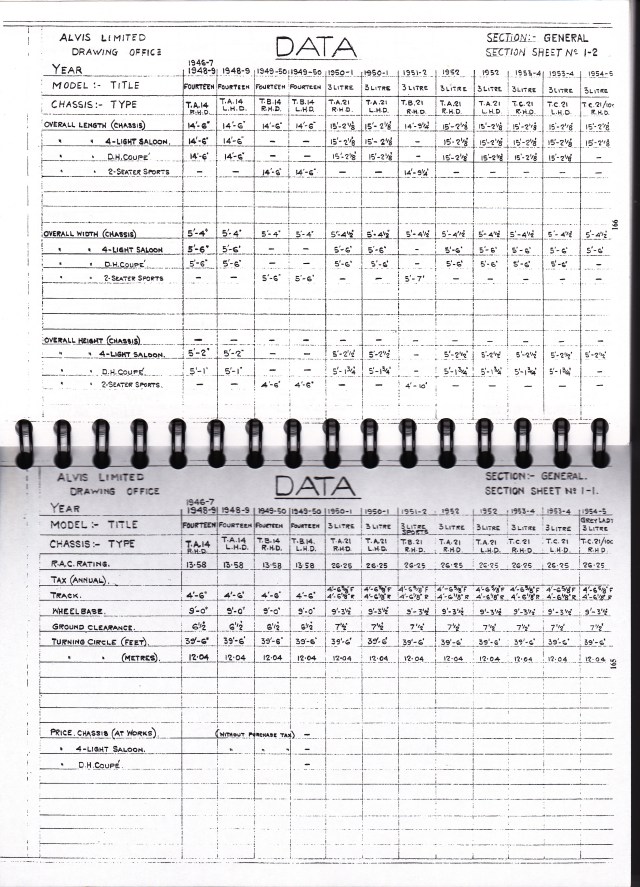 ALVIS LIMITED DATA SECTION:- GENERAL
DRAWING OFFICE SECTION SHEET Nº 1-2
1946-7
YEAR 1948-9 1948-9 1949-50 1949-50 1950-1 1950-1 1951-2 1952 1952 1953-4 1953-4 1954-5
MODEL:- TITLE FOURTEEN FOURTEEN FOURTEEN FOURTEEN 3 LITRE 3 LITRE 3 LITRE 3 LITRE 3 LITRE 3 LITRE 3 LITRE 3 LITRE
CHASSIS:- TYPE T.A.14 T.A.14 T.B.14 T.B.14 T.A.21 T.A.21 T.B.21 T.A.21 T.A.21 T.C.21 T.C.21 T.C.21/100
R.H.D. L.H.D. R.H.D. L.H.D. R.H.D. L.H.D. R.H.D. R.H.D. L.H.D. R.H.D. L.H.D. R.H.D.
OVERALL LENGTH (CHASSIS) 14'-6" 14'-6" 14'-6" 14'-6" 15'-2⅛ 15'-2⅛ 14'-9¼" 15'-2⅛ 15'-2⅛ 15'-2⅛ 15'-2⅛ 15'-2⅛
" " 4-LIGHT SALOON. 14'-6" 14'-6" – – 15'-2⅛ 15'-2⅛ – 15'-2⅛ 15'-2⅛ 15'-2⅛ 15'-2⅛ 15'-2⅛
" " D.H.COUPÉ 14'-6" 14'-6" – – 15'-2⅛ 15'-2⅛ – 15'-2⅛ 15'-2⅛ 15'-2⅛ 15'-2⅛ –
" " 2-SEATER SPORTS – – 14'-6" 14'-6" – – 14'-9¼" – – – – –
OVERALL WIDTH (CHASSIS) 5'-4" 5'-4" 5'-4" 5'-4" 5'-4½ 5'-4½ 5'-4½ 5'-4½ 5'-4½ 5'-4½ 5'-4½ 5'-4½
" " 4-LIGHT SALOON 5'-6" 5'-6" – – 5'-6" 5'-6" – 5'-6" 5'-6" 5'-6" 5'-6" 5'-6"
" " D.H.COUPÉ 5'-6" 5'-6" – – 5'-6" 5'-6" – 5'-6" 5'-6" 5'-6" 5'-6" –
" " 2-SEATER SPORTS – – 5'-6" 5'-6" – – 5'-7" – – – – –
OVERALL HEIGHT (CHASSIS) – – – – – – – – – – – –
" " 4-LIGHT SALOON. 5'-2" 5'-2" – – 5'-2½ 5'-2½ – 5'-2½ 5'-2½ 5'-2½ 5'-2½ 5'-2½
" " D.H.COUPÉ 5'-1" 5'-1" – – 5'-1¾ 5'-1¾ – 5'-1¾ 5'-1¾ 5'-1¾ 5'-1¾ –
" " 2-SEATER SPORTS. – – 4'-6" 4'-6" – – 4'-10" – – – – –
166
ALVIS LIMITED DATA SECTION:- GENERAL.
DRAWING OFFICE SECTION SHEET Nº 1-1.
1946-7
YEAR 1948-9 1948-9 1949-50 1949-50 1950-1 1950-1 1951-2 1952 1952 1953-4 1953-4 1954-5
MODEL:- TITLE FOURTEEN FOURTEEN FOURTEEN FOURTEEN 3 LITRE 3 LITRE 3 LITRE SPORTS 3 LITRE 3 LITRE 3 LITRE 3 LITRE GREY LADY 3 LITRE
CHASSIS:- TYPE T.A.14 T.A.14 T.B.14 T.B.14. T.A.21 T.A.21 T.B.21 T.A.21 T.A.21 T.C.21 T.C.21 T.C.21/100
R.H.D. L.H.D. R.H.D. L.H.D. R.H.D. L.H.D. R.H.D. R.H.D. L.H.D. R.H.D. L.H.D. R.H.D.
R.A.C. RATING. 13·58 13·58 13·58 13·58 26·25 26·25 26·25 26·25 26·25 26·25 26·25 26·25
TAX (ANNUAL).
TRACK. 4'-6" 4'-6" 4'-6" 4'-6"
WHEELBASE. 9'-0" 9'-0" 9'-0" 9'-0" 9'-3½ 9'-3½ 9'-3½ 9'-3½ 9'-3½ 9'-3½ 9'-3½ 9'-3½
GROUND CLEARANCE. 6½ 6½ 6½ 6½ 7½ 7½ 7½ 7½ 7½ 7½ 7½ 7½
TURNING CIRCLE (FEET). 39'-6" 39'-6" 39'-6" 39'-6" 39'-6" 39'-6" 39'-6" 39'-6" 39'-6" 39'-6" 39'-6" 39'-6"
" " (METRES) 12·04 12·04 12·04 12·04 12·04 12·04 12·04 12·04 12·04 12·04 12·04 12·04
165
PRICE. CHASSIS (AT WORKS) (WITHOUT PURCHASE TAX) –
" 4-LIGHT SALOON. " " " –
" D.H.COUPÉ –